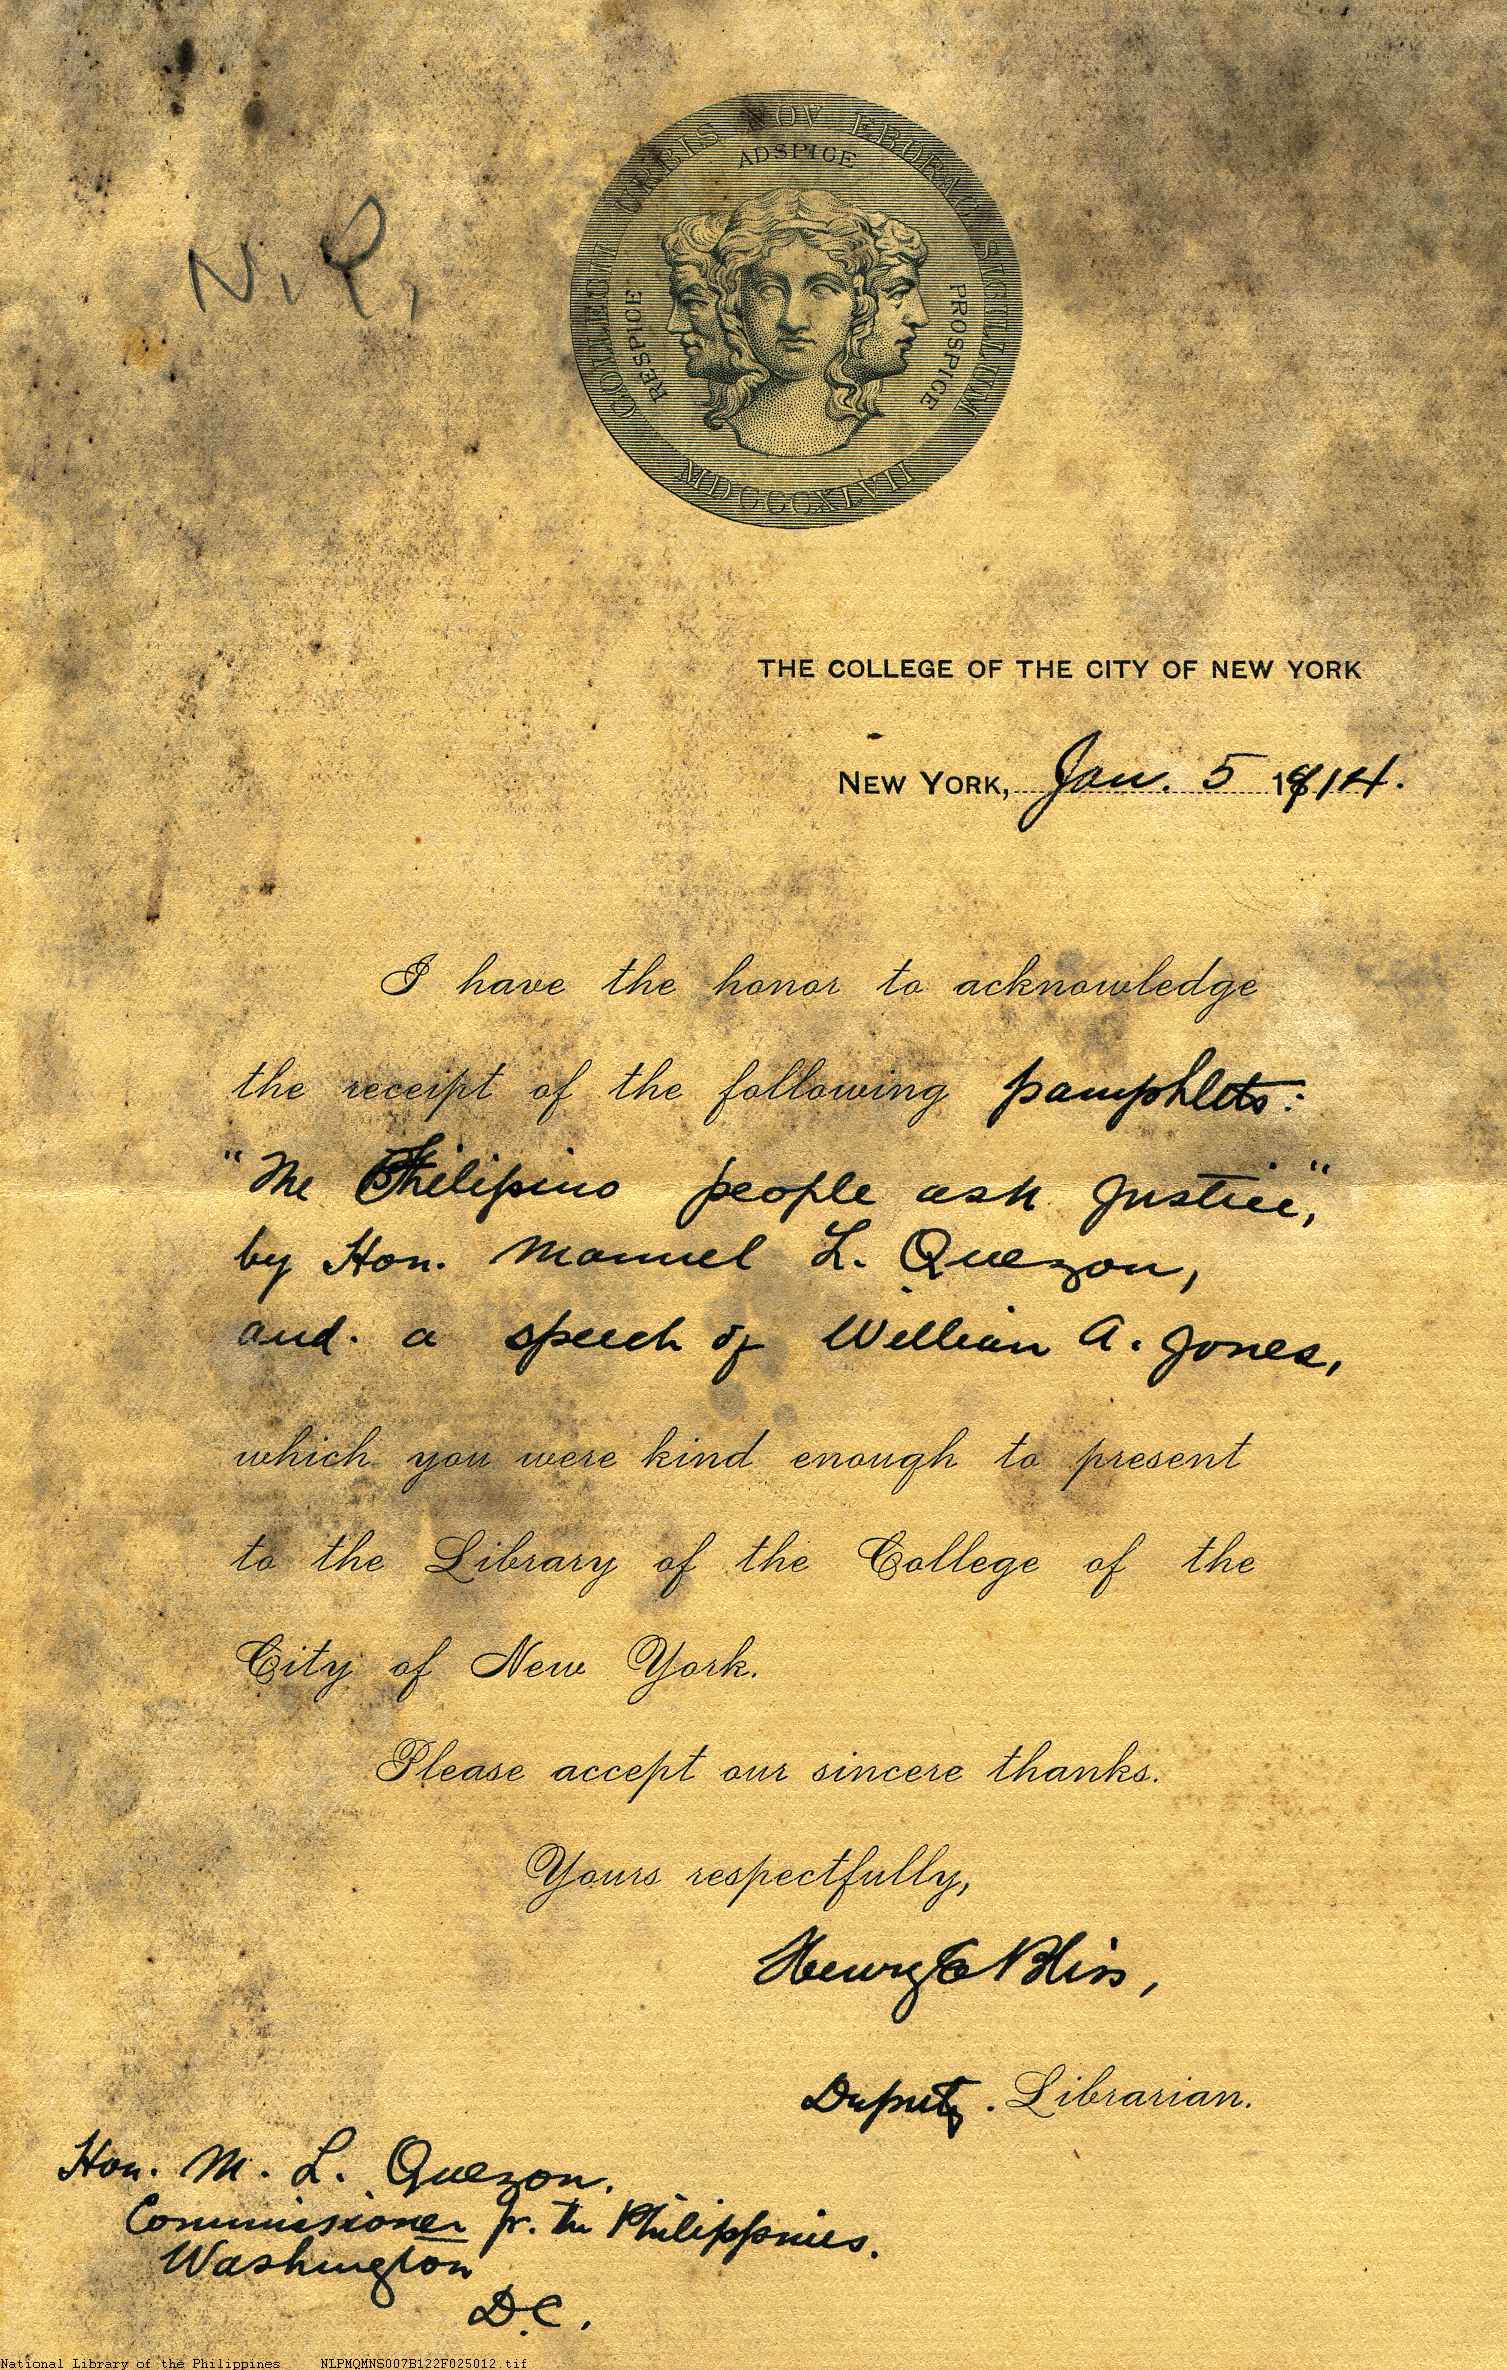 N.R.
COLLEGII URBIS NOV EBORAC SIGILLUM
ADSPICE
RESPICE
PROSPICE
MDCCCXLVII
THE COLLEGE OF THE CITY OF NEW YORK
NEW YORK, Jan. 5 1914.
I have the honor to acknowledge
the receipt of the following pamphlets:
"The Philipino people ask Justice,"
by Hon. Manuel L. Quezon,
and. a speech of William A. Jones,
which you were kind enough to present
to the Library of the College of the
City of New York.
Please accept our sincere thanks.
Yours respectfully,
Henry E Bliss,
Deputy. Librarian.
Hon. M. L. Quezon.
Commissioner fr. the Philippines.
Washington
D.C.
National Library of the Philippines NLPMQMNS007B122F025012.tif